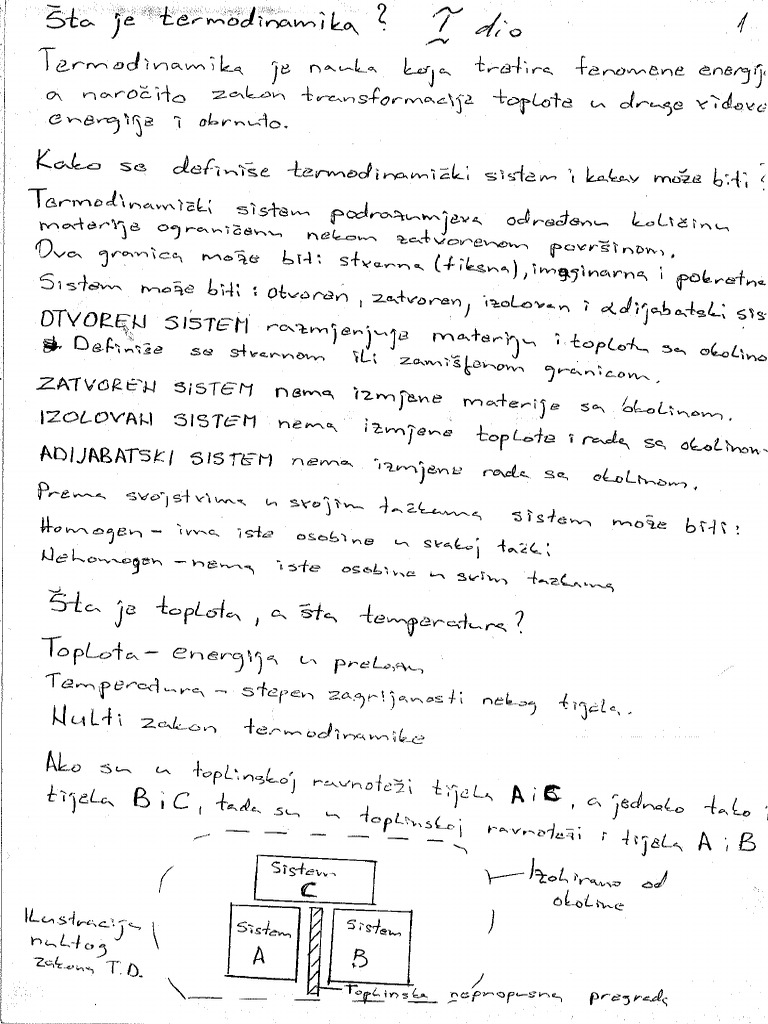 Šta je termodinamika? I dio 1
Termodinamika je nauka koja tretira fenomene energij
a naročito zakon transformacije toplote u druge vidove
energije i obrnuto.
Kako se definiše termodinamički sistem i kakav može biti?
Termodinamički sistem podrazumjeva određenu količinu
materije ograničenu nekom zatvorenom površinom.
Ova granica može biti: stvarna (fiksna), imaginarna i pokretna
Sistem može biti: otvoren, zatvoren, izolovan i adijabatski sis
OTVOREN SISTEM razmjenjuje materiju i toplotu sa okolino
Definiše se stvarnom ili zamišljenom granicom.
ZATVOREN SISTEM nema izmjene materije sa okolinom.
IZOLOVAN SISTEM nema izmjene toplote i rada sa okolinom.
ADIJABATSKI SISTEM nema izmjene rada sa okolinom.
Prema svojstvima u svojim tačkama sistem može biti:
Homogen - ima iste osobine u svakoj tački
Nehomogen - nema iste osobine u svim tačkama
Šta je toplota, a šta temperatura?
Toplota - energija u prelazu
Temperatura - stepen zagrijanosti nekog tijela.
Nulti zakon termodinamike
Ako su u toplinskoj ravnoteži tijela A i C, a jednako tako i
tijela B i C, tada su u toplinskoj ravnoteži i tijela A i B
Sistem
C
Izolirano od
okoline
Ilustracija
nultog
zakona T.D.
Sistem
A
Sistem
B
Toplinska nepropusna pregrada